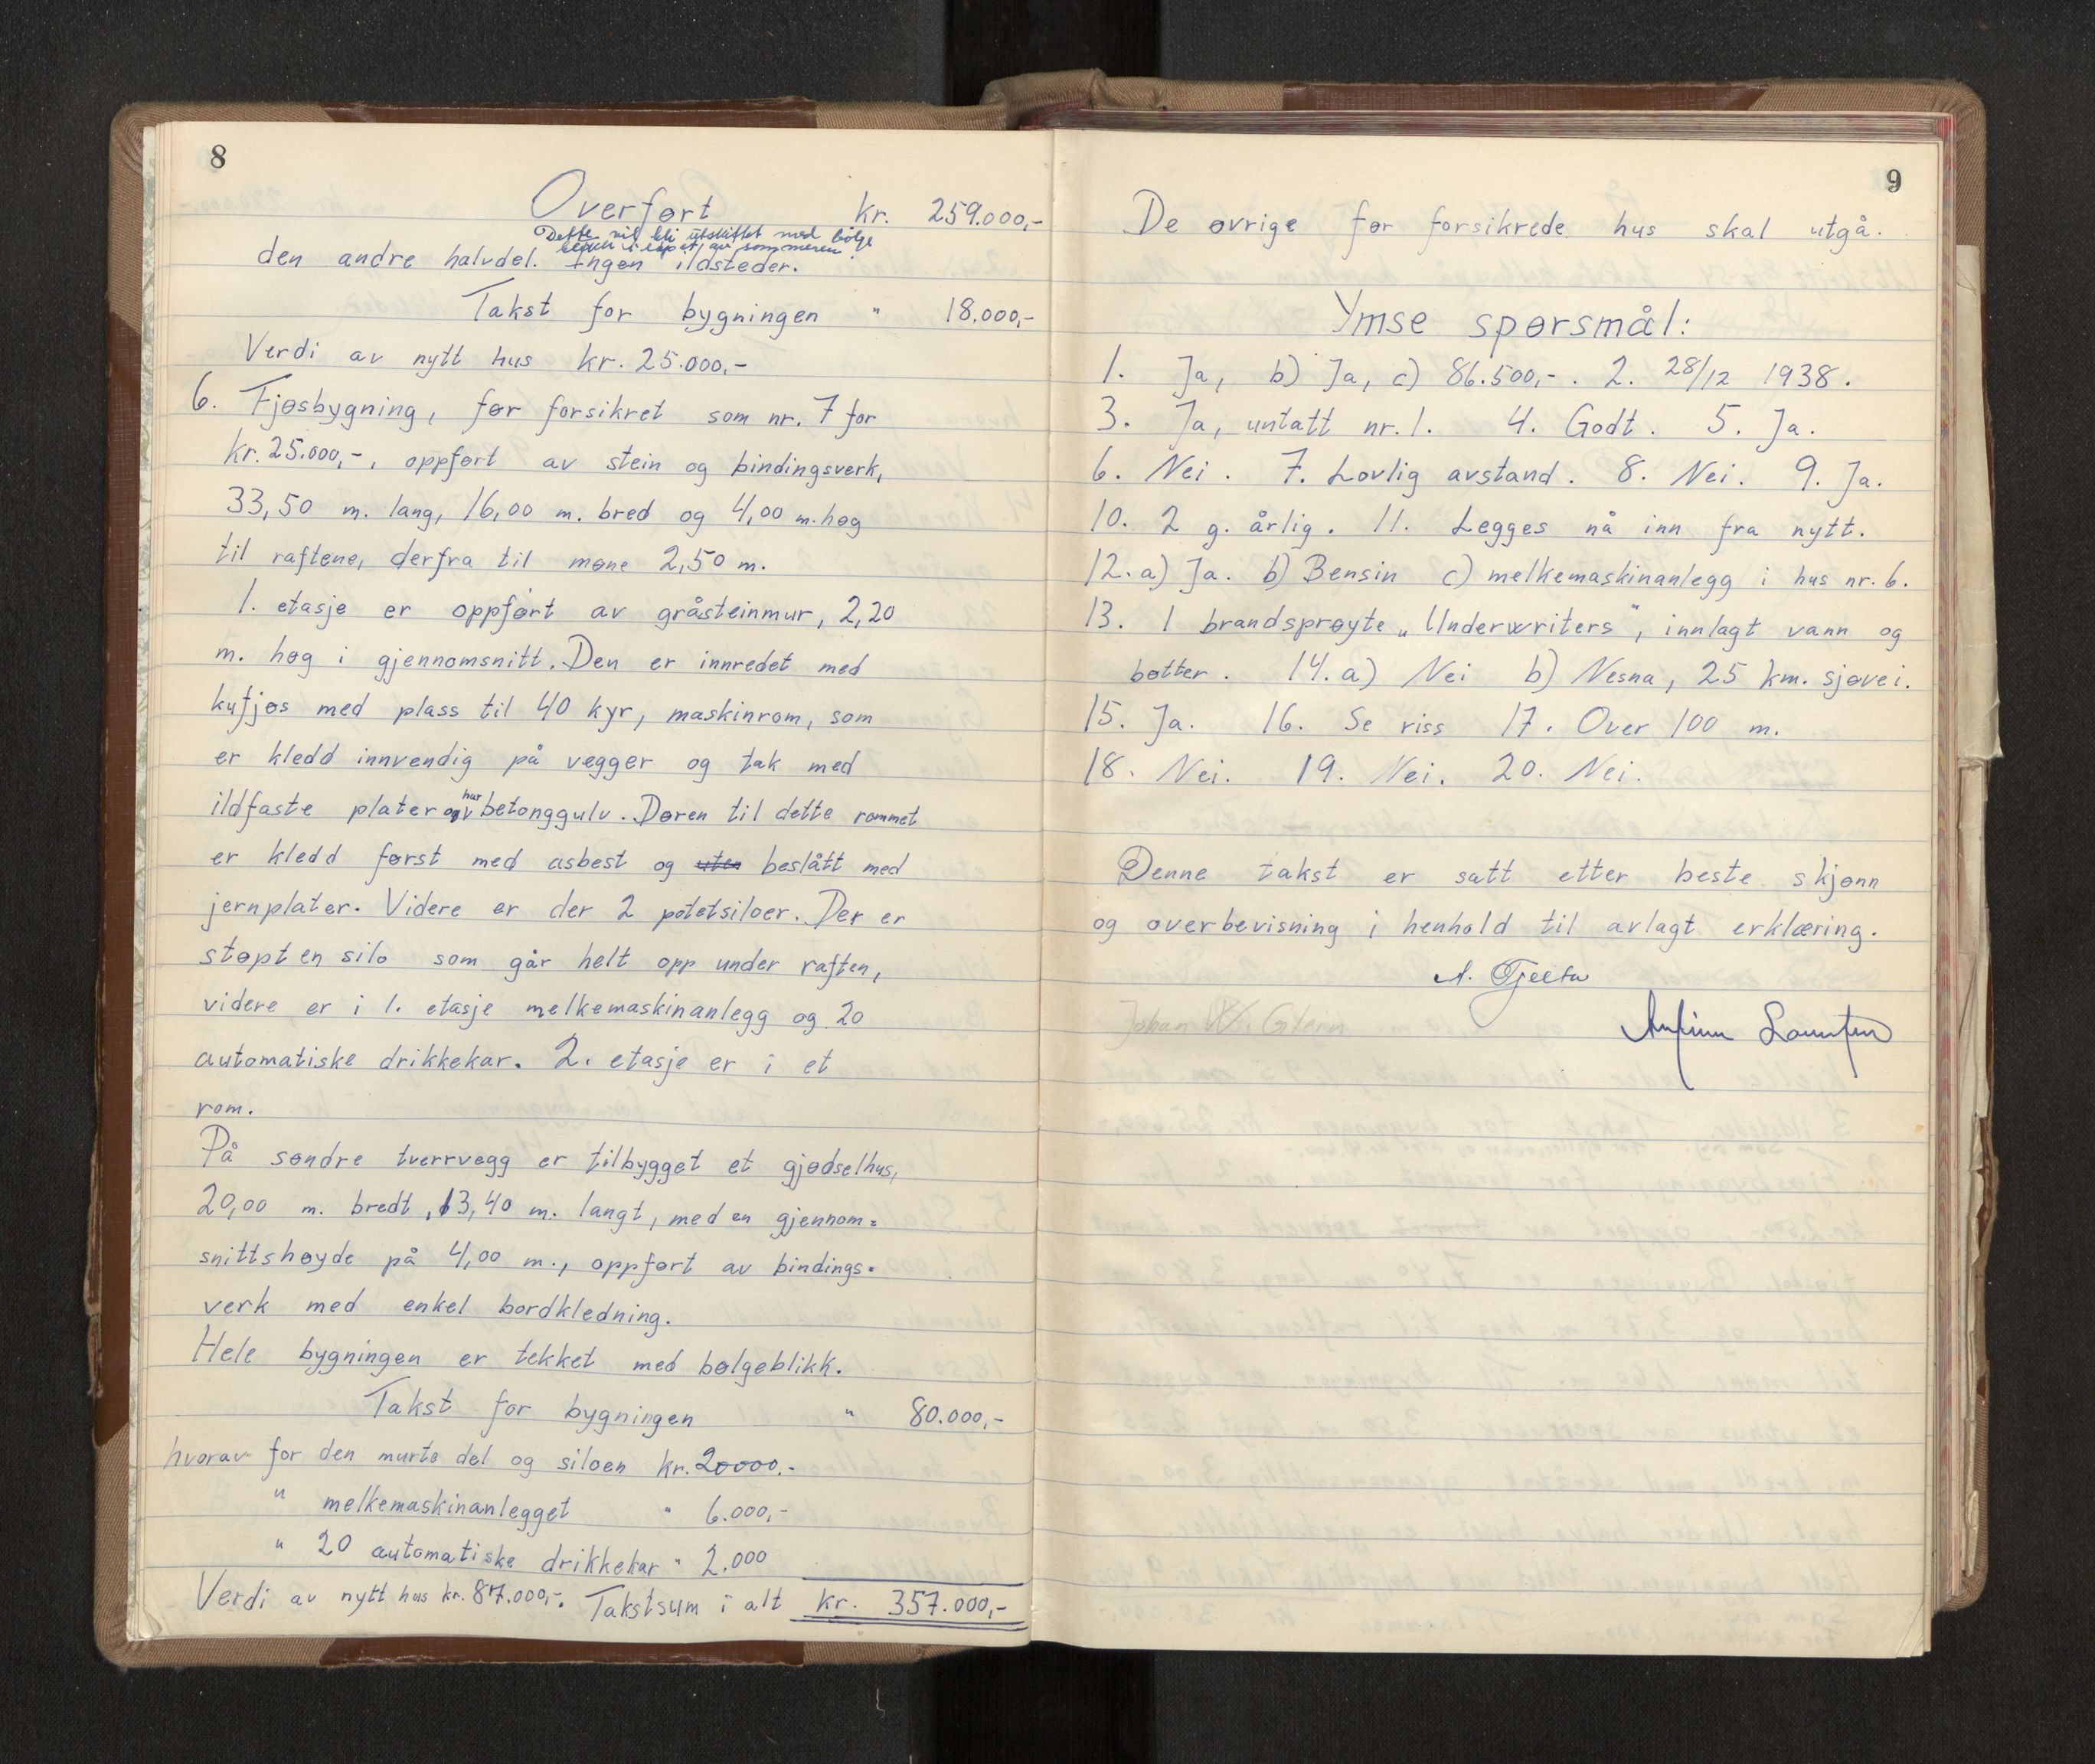 8
Overført kr. 259.000,-
Dette vil bli utskiftet med bølge
blikk i løpet av sommeren.
den andre halvdel. Ingen ildsteder.
Takst for bygningen " 18.000,-
Verdi av nytt hus kr. 25.000,-
6. Fjøsbygning, før forsikret som nr. 7 for
kr. 25.000,-, oppført av stein og bindingsverk,
33,50 m. lang, 16,00 m. bred og 4,00 m. høg
til raftene, derfra til møne 2,50 m.
1. etasje er oppført av gråsteinmur, 2,20
m. høg i gjennomsnitt. Den er innredet med
kufjøs med plass til 40 kyr, maskinrom, som
er kledd innvendig på vegger og tak med
ildfaste plater og har betonggulv. Døren til dette rommet
er kledd først med asbest og uten beslått med
jernplater. Videre er der 2 potetsiloer. Der er
støpt en silo som går helt opp under raften,
videre er i 1. etasje melkemaskinanlegg og 20
automatiske drikkekar. 2. etasje er i et
rom.
På søndre tverrvegg er tilbygget et gjødselhus,
20,00 m. bredt, 13,40 m. langt, med en gjennom=
snittshøyde på 4,00 m., oppført av bindings=
verk med enkel bordkledning.
Hele bygningen er tekket med bølgeblikk.
Takst for bygningen " 80.000,-
hvorav for den murte del og siloen kr. 20000.-
" melkemaskinanlegget " 6.000,-
" 20 automatiske drikkekar " 2.000
Verdi av nytt hus kr. 87.000,-. Takstsum i alt kr. 357.000,-
9
De øvrige før forsikrede hus skal utgå.
Ymse spørsmål:
1. Ja, b) Ja, c) 86.500,-. 2. 28/12 1938.
3. Ja, untatt nr. 1. 4. Godt. 5. Ja.
6. Nei. 7. Lovlig avstand. 8. Nei. 9. Ja.
10. 2 g. årlig. 11. Legges nå inn fra nytt.
12. a) Ja. b) Bensin c) melkemaskinanlegg i hus nr. 6.
13. 1 brandsprøyte „Underwriters", innlagt vann og
bøtter. 14. a) Nei b) Nesna, 25 km. sjøvei.
15. Ja. 16. Se riss 17. Over 100 m.
18. Nei. 19. Nei. 20. Nei.
Denne takst er satt etter beste skjønn
og overbevisning i henhold til avlagt erklæring.
A. Tjelta
Johan